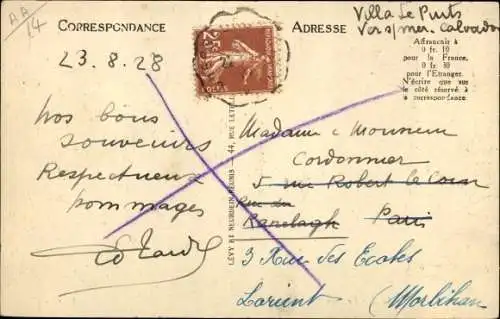 AA
14
CORRESPONDANCE
ADRESSE
Villa Le Puits
Vers/mer. Calvados
Affranchir à
0 fr. 10
pour la France,
0 fr. 30
pour l'Etranger.
N'écrire que sur
le côté réservé à
la correspondance
23.8.28
Nos bons
souvenirs
Respectueux
hommages
25c
POSTES
LÉVY ET NEURDEIN RÉUNIS — 44, RUE LETELLIER
Madame & Monsieur
Cordonnier
5 rue Robert le Coin
Rue du
Ranelagh Paris
3 Rue des Ecoles
Lorient (Morbihan)